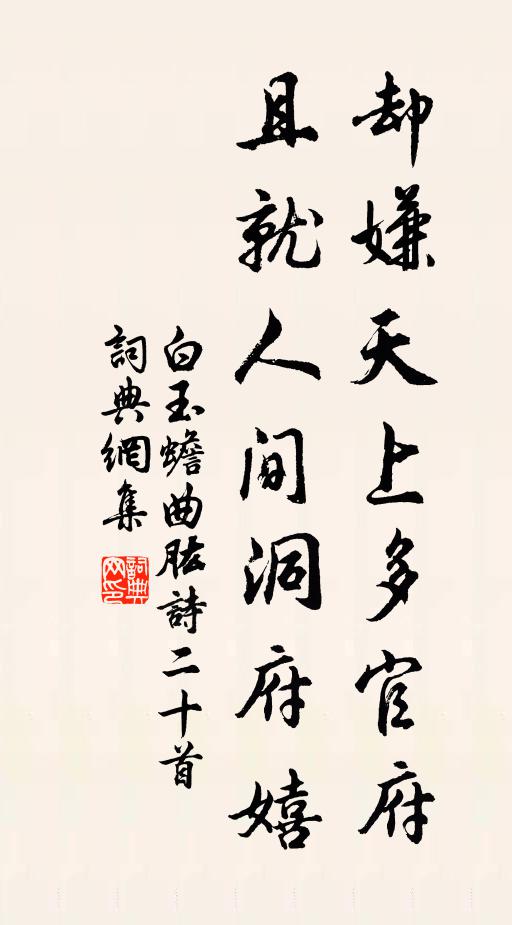 却嫌天上多官府
且就人间洞府嬉
白玉蟾曲肱詩二十首
詞典網集
詞典网印